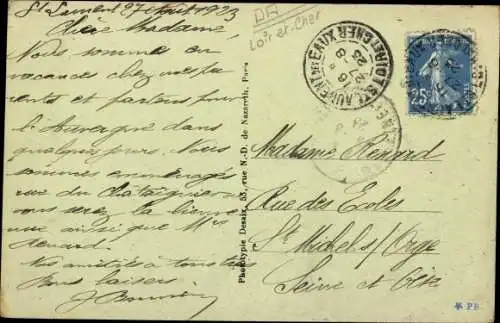 St Laurent 27 Août 1923
Chère Madame,
Nous sommes en
vacances chez mes pa-
rents et partons pour
l'Auvergne dans
quelques jours. Nous
sommes emménagés
rue du Châtaignier
vous serez la bienve-
nue ainsi que Mr
Renard.
Nos amitiés à tous
Bons baisers.
DR
Loir-et-Cher
Phototypie Desaix, 53, rue N.-D. de Nazareth, Paris
ST LAURENT DES EAUX
LOIR ET CHER
25c
Madame Renard
Rue des Ecoles
St Michel s/ Orge
Seine et Oise
* PB